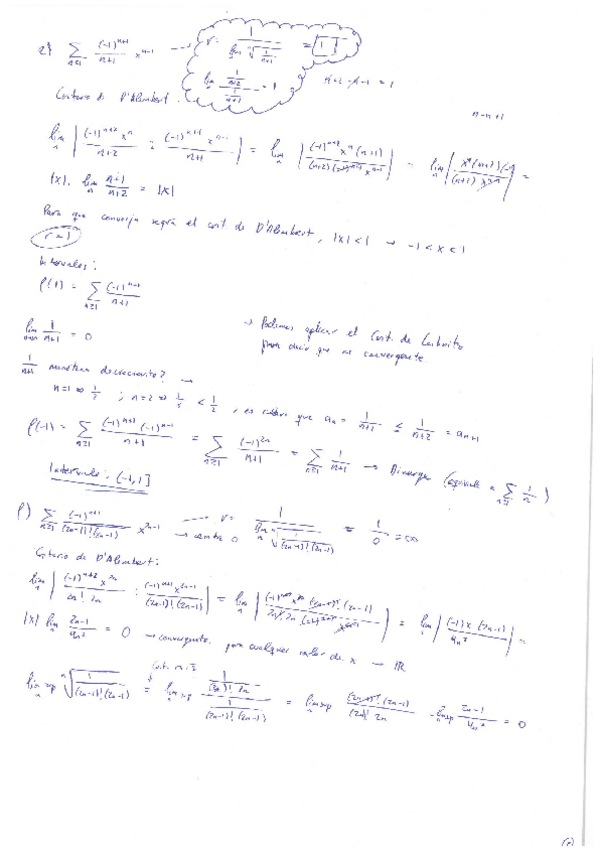 e) ∑_{n≥1} (-1)^{n+1}/(n+1) x^{n-1} → r = 1/(lim_n ⁿ√(1/(n+1))) = 1
lim_n (1/(n+2))/(1/(n+1)) = 1
n+2-n-1 = 1
Criterio de D'Alembert.
n-n+1
lim_n | (-1)^{n+2} x^n/(n+2) : (-1)^{n+1} x^{n-1}/(n+1) | = lim_n | (-1)^{n+2} x^n (n+1)/((n+2)(-1)^{n+1} x^{n-1}) | =
|x|. lim_n (n+1)/(n+2) = |x|
Para que converja según el crit de D'Alembert, |x| < 1 → -1 < x < 1
r = 1
Intervalos:
f(1) = ∑_{n≥1} (-1)^{n+1}/(n+1)
→ Podemos aplicar el Crit. de Leibnitz
para decir que es convergente
lim 1/(n+1) = 0
1/(n+1) monótona decreciente? →
n=1 ⇒ 1/2 ; n=2 ⇒ 1/3 < 1/2 , es claro que a_n = 1/(n+1) ≤ 1/(n+2) = a_{n+1}
f(-1) = ∑_{n≥1} (-1)^{n+1} (-1)^{n-1}/(n+1) = ∑_{n≥1} (-1)^{2n}/(n+1) = ∑_{n≥1} 1/(n+1) → Diverge (equivale a ∑_{n≥1} 1/n)
Intervalo: (-1,1]
f) ∑_{n≥1} (-1)^{n+1}/((2n-1)!(2n-1)) x^{2n-1} → r = 1/(lim_n ⁿ√(1/((2n-1)!(2n-1)))) = 1/0 = ∞
→ centro 0
Criterio de D'Alembert:
lim_n | (-1)^{n+2} x^{2n}/(2n! 2n) : (-1)^{n+1} x^{2n-1}/((2n-1)!(2n-1)) | = = lim_n | (-1) x (2n-1)/4n² | =
|x| lim_n (2n-1)/4n² = 0 → convergente para cualquier valor de x → ℝ
lim sup_n ⁿ√(1/((2n-1)!(2n-1))) = lim sup_n (1/((2n)! 2n))/(1/((2n-1)!(2n-1))) = lim sup_n (2n-1)!(2n-1)/((2n)! 2n) = lim sup_n (2n-1)/4n² = 0